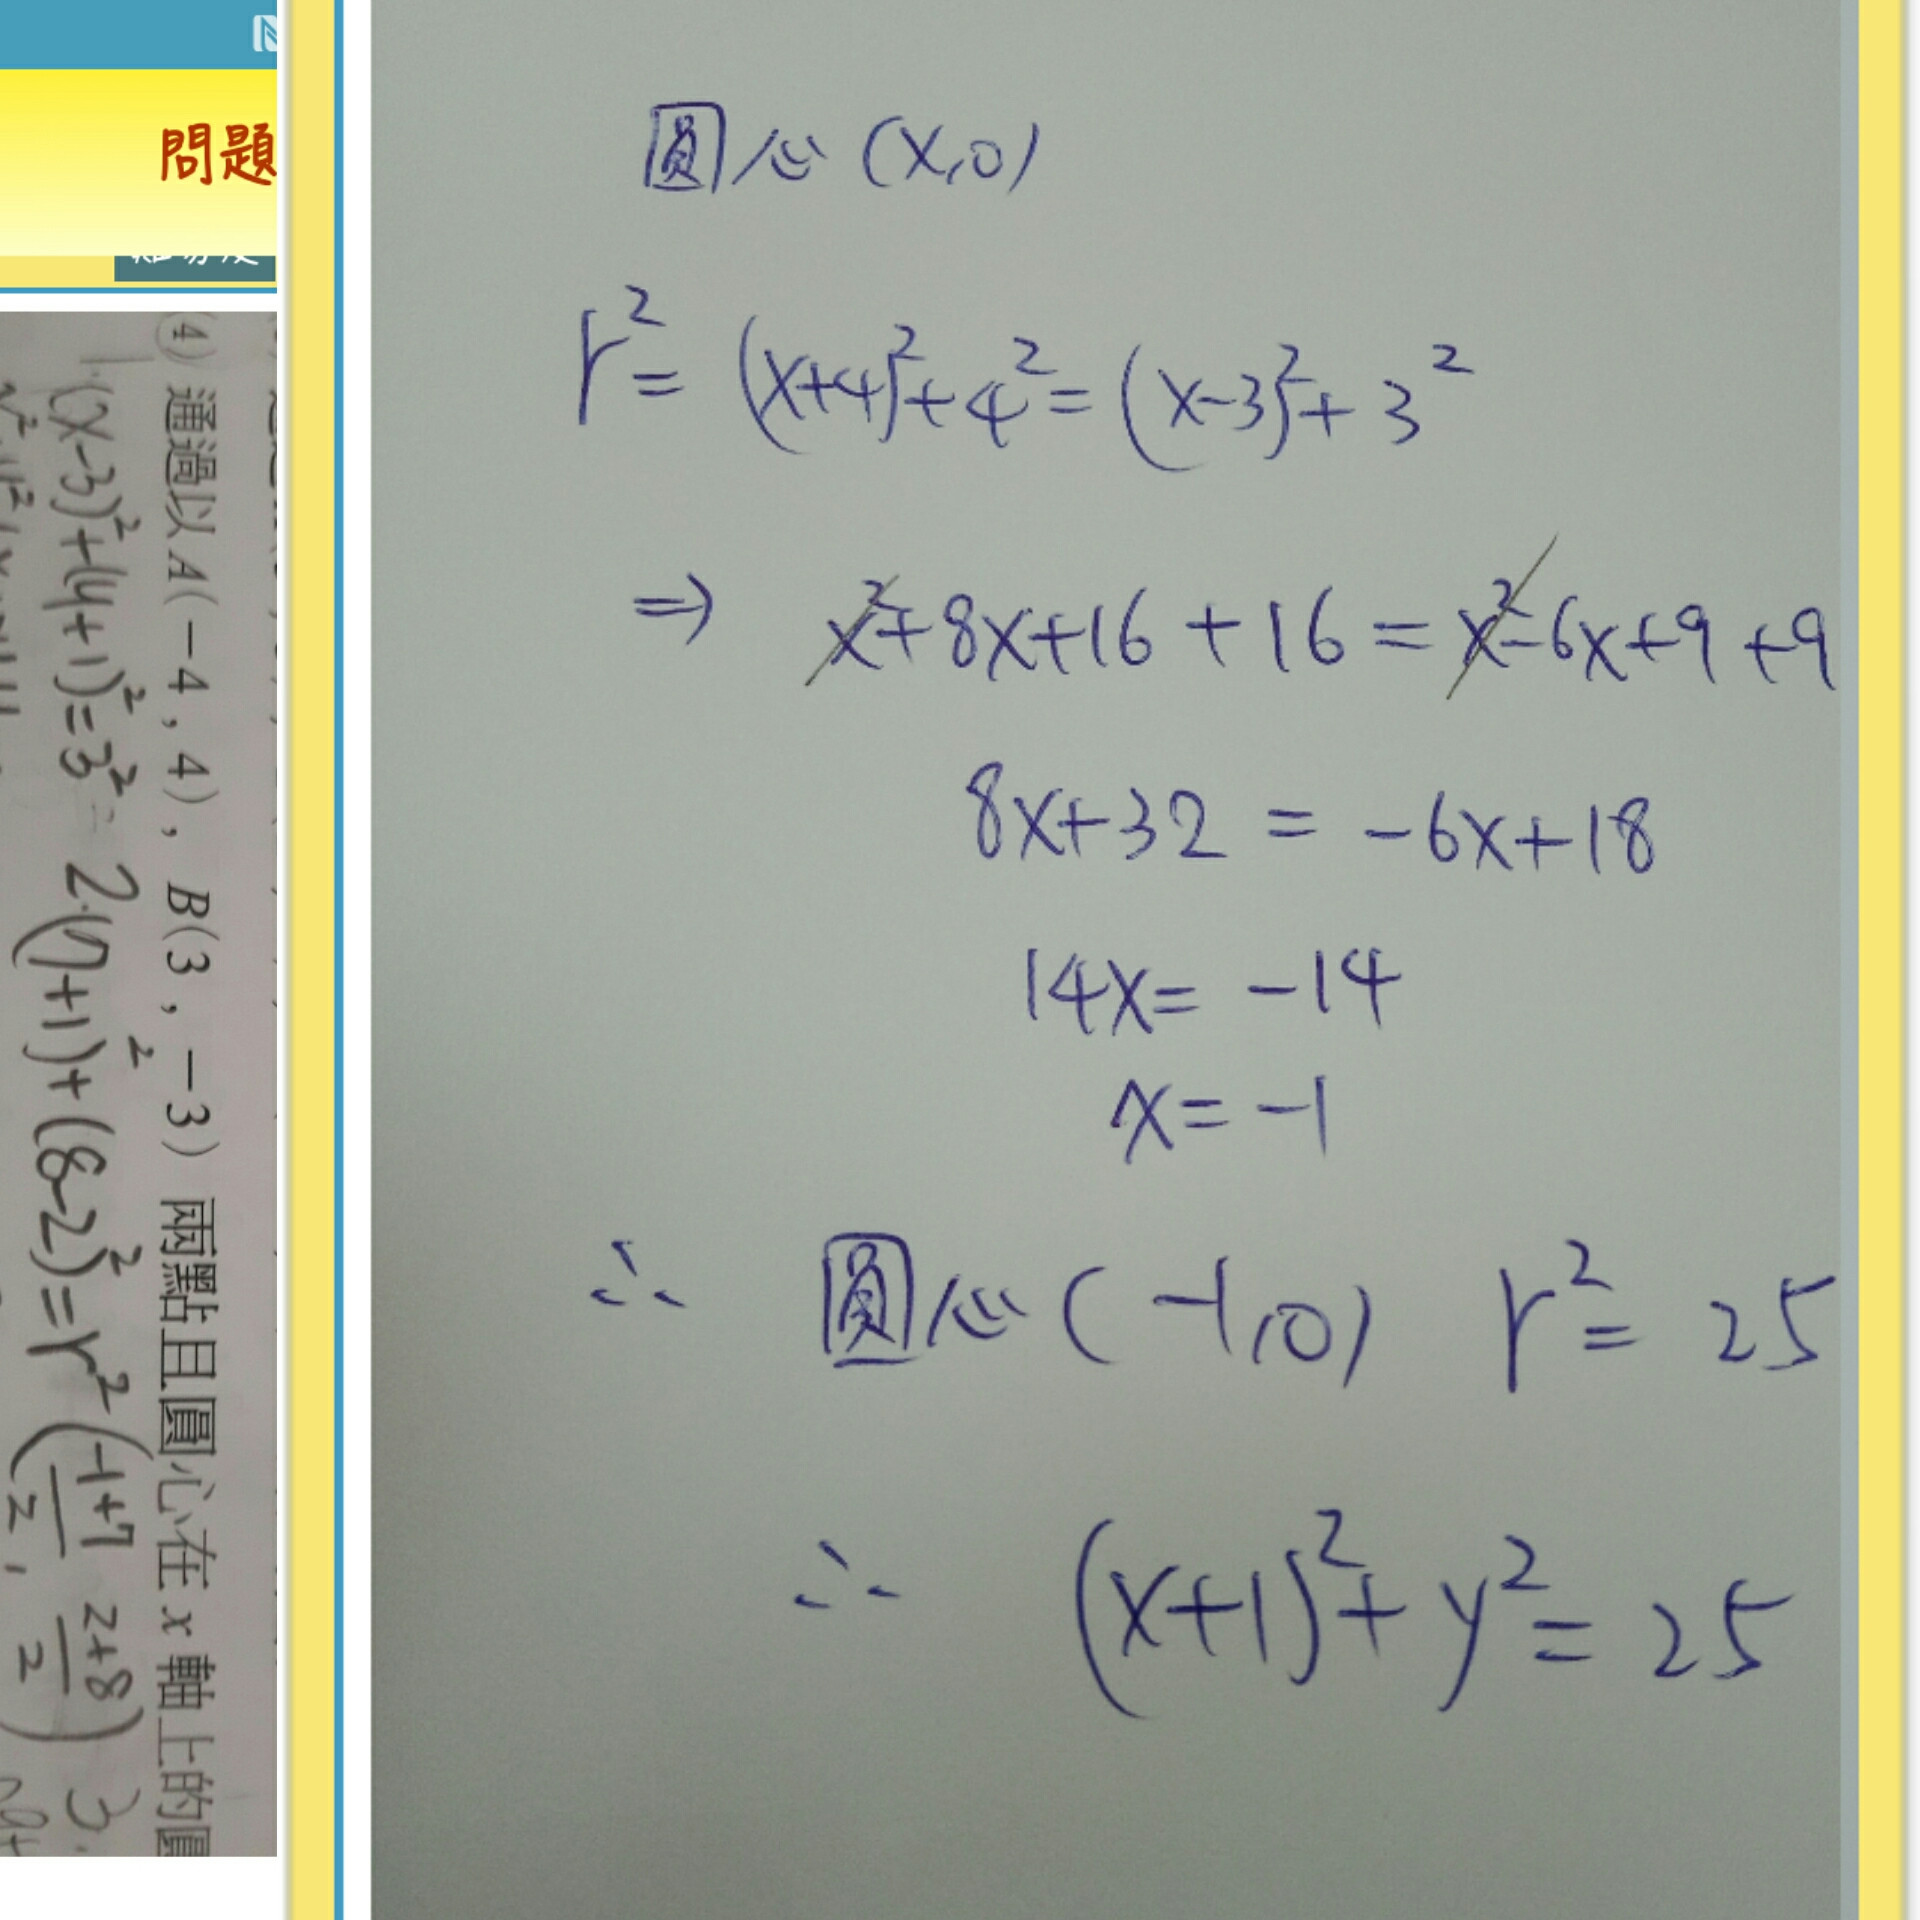 問題
④ 通過以 A(-4, 4), B(3, -3) 兩點且圓心在 x 軸上的圓
1. (x-3)²+(y+1)²=3² 2. (7+1)²+(8-2)²=r² (-1+7/2, 2+8/2) 3.
圓心 (x,0)
r² = (x+4)²+4² = (x-3)²+3²
⇒ x²+8x+16+16 = x²-6x+9+9
8x+32 = -6x+18
14x = -14
x = -1
∴ 圓心 (-1,0) r² = 25
∴ (x+1)²+y² = 25